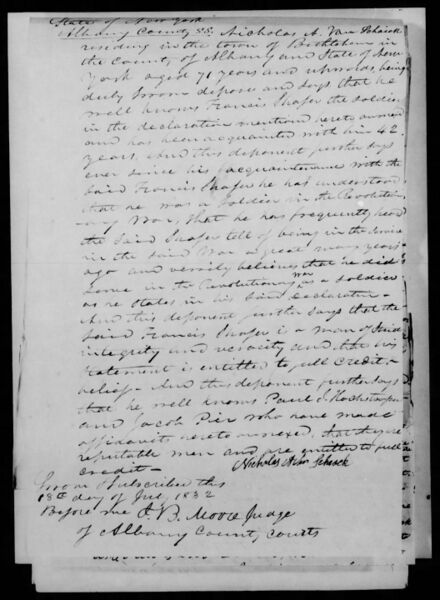 State of New York
Albany County SS. Nicholas A. Van Schaick
residing in the town of Bethlehem in
the County of Albany and State of New
York aged 71 years and upwards, being
duly sworn deposes and says that he
well knows Francis Shafer the soldier
in the declaration mentioned hereto annexed
and has been acquainted with him 42
years, And this deponent further says
ever since his acquaintance with the
said Francis Shafer he has understood
that he was a soldier in the Revolution
ary War, that he has frequently heard
the said Shafer tell of being in the service
in the said War a great many years
ago and verily believes that he did
serve in the Revolutionary War as a soldier
as he states in his said declaration
And this deponent further says that the
said Francis Shafer is a man of
integrity and veracity and his
statement is entitled to full credit &
belief. And this deponent further says
that he well knows Paul J.
and Jacob Pier who have made
affidavits hereto annexed, that they are
reputable men and are entitled to full
credit
Nicholas A Van Schaick
Sworn & Subscribed this
18th day of 1832
Before me J. B. Moore Judge
of Albany County Courts